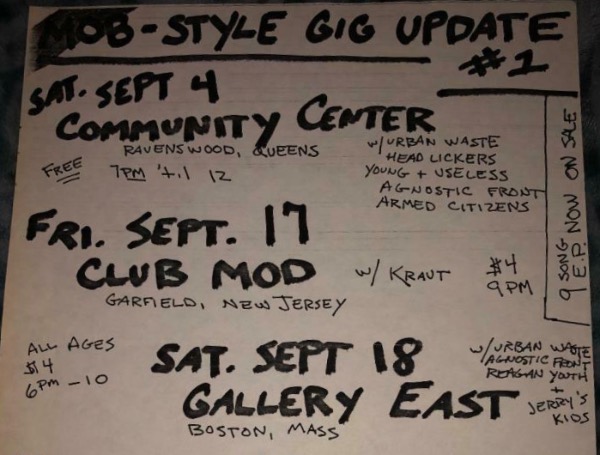 MOB-STYLE GIG UPDATE
#1
SAT. SEPT 4
COMMUNITY CENTER
RAVENSWOOD, QUEENS
FREE
7PM 'til 12
w/ URBAN WASTE
HEAD LICKERS
YOUNG + USELESS
AGNOSTIC FRONT
ARMED CITIZENS
9 SONG E.P. NOW ON SALE
FRI. SEPT. 17
CLUB MOD
GARFIELD, NEW JERSEY
w/ KRAUT
$4
9PM
ALL AGES
$4
6PM - 10
SAT. SEPT 18
GALLERY EAST
BOSTON, MASS
w/ URBAN WASTE
AGNOSTIC FRONT
REAGAN YOUTH
+
JERRY'S
KIDS